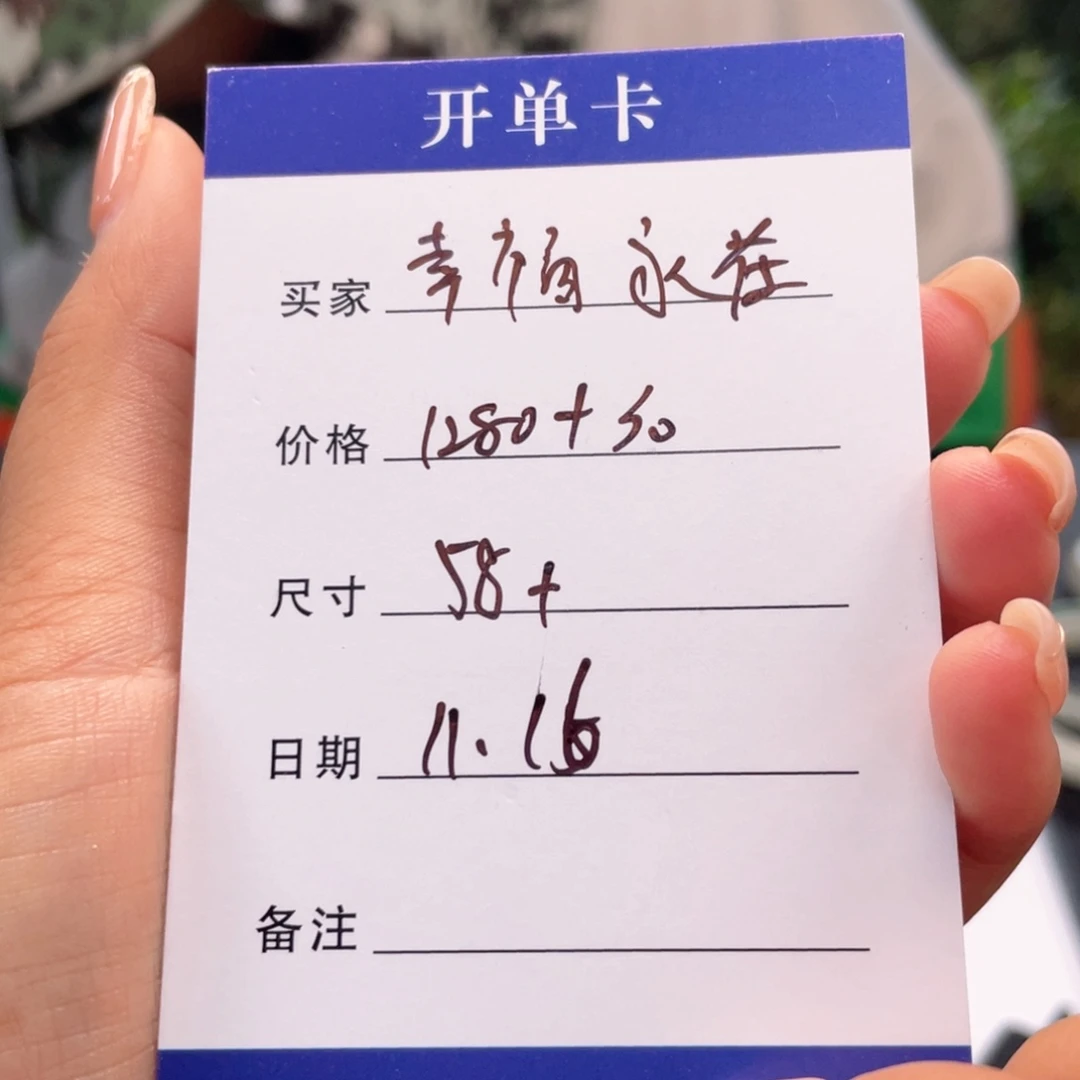 开单卡
买家 幸福永在
价格 1280+50
尺寸 58+
日期 11.16
备注